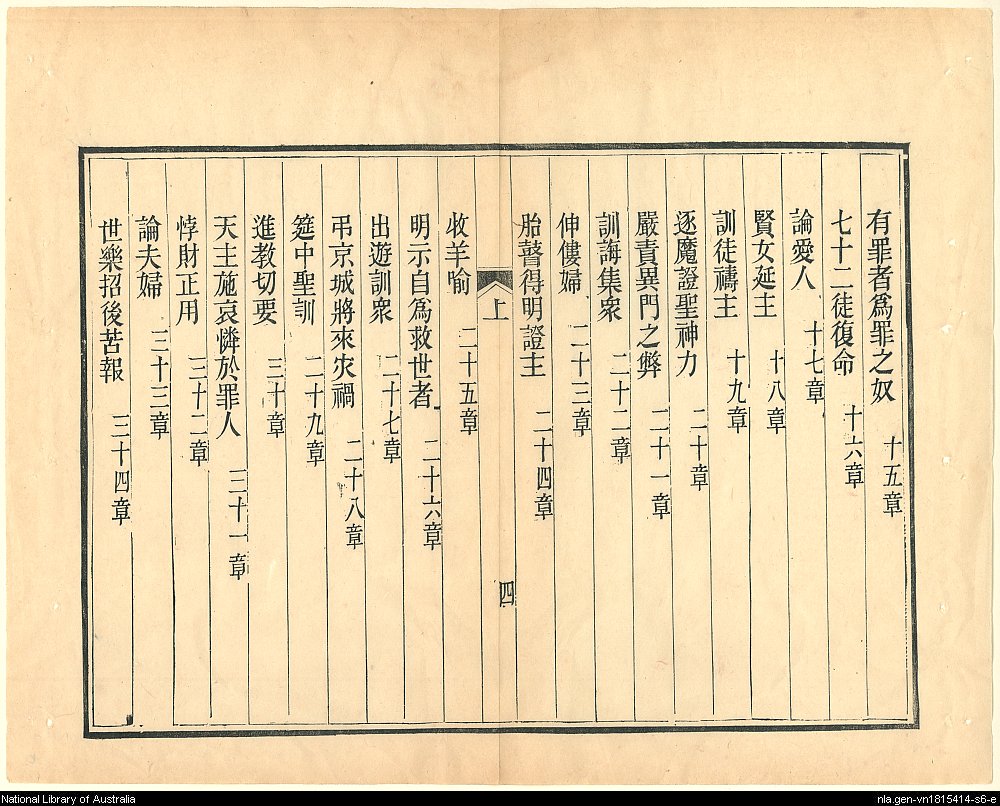 有罪者爲罪之奴 十五章
七十二徒復命 十六章
論愛人 十七章
賢女延主 十八章
訓徒禱主 十九章
逐魔證聖神力 二十章
嚴責異門之弊 二十一章
訓誨集衆 二十二章
伸僂婦 二十三章
胎瞽得明證主 二十四章
上
四
收羊喻 二十五章
明示自爲救世者 二十六章
出遊訓衆 二十七章
弔京城將來灾禍 二十八章
筵中聖訓 二十九章
進教切要 三十章
天主施哀憐於罪人 三十一章
悖財正用 三十二章
論夫婦 三十三章
世樂招後苦報 三十四章
National Library of Australia
nla.gen-vn1815414-s6-e